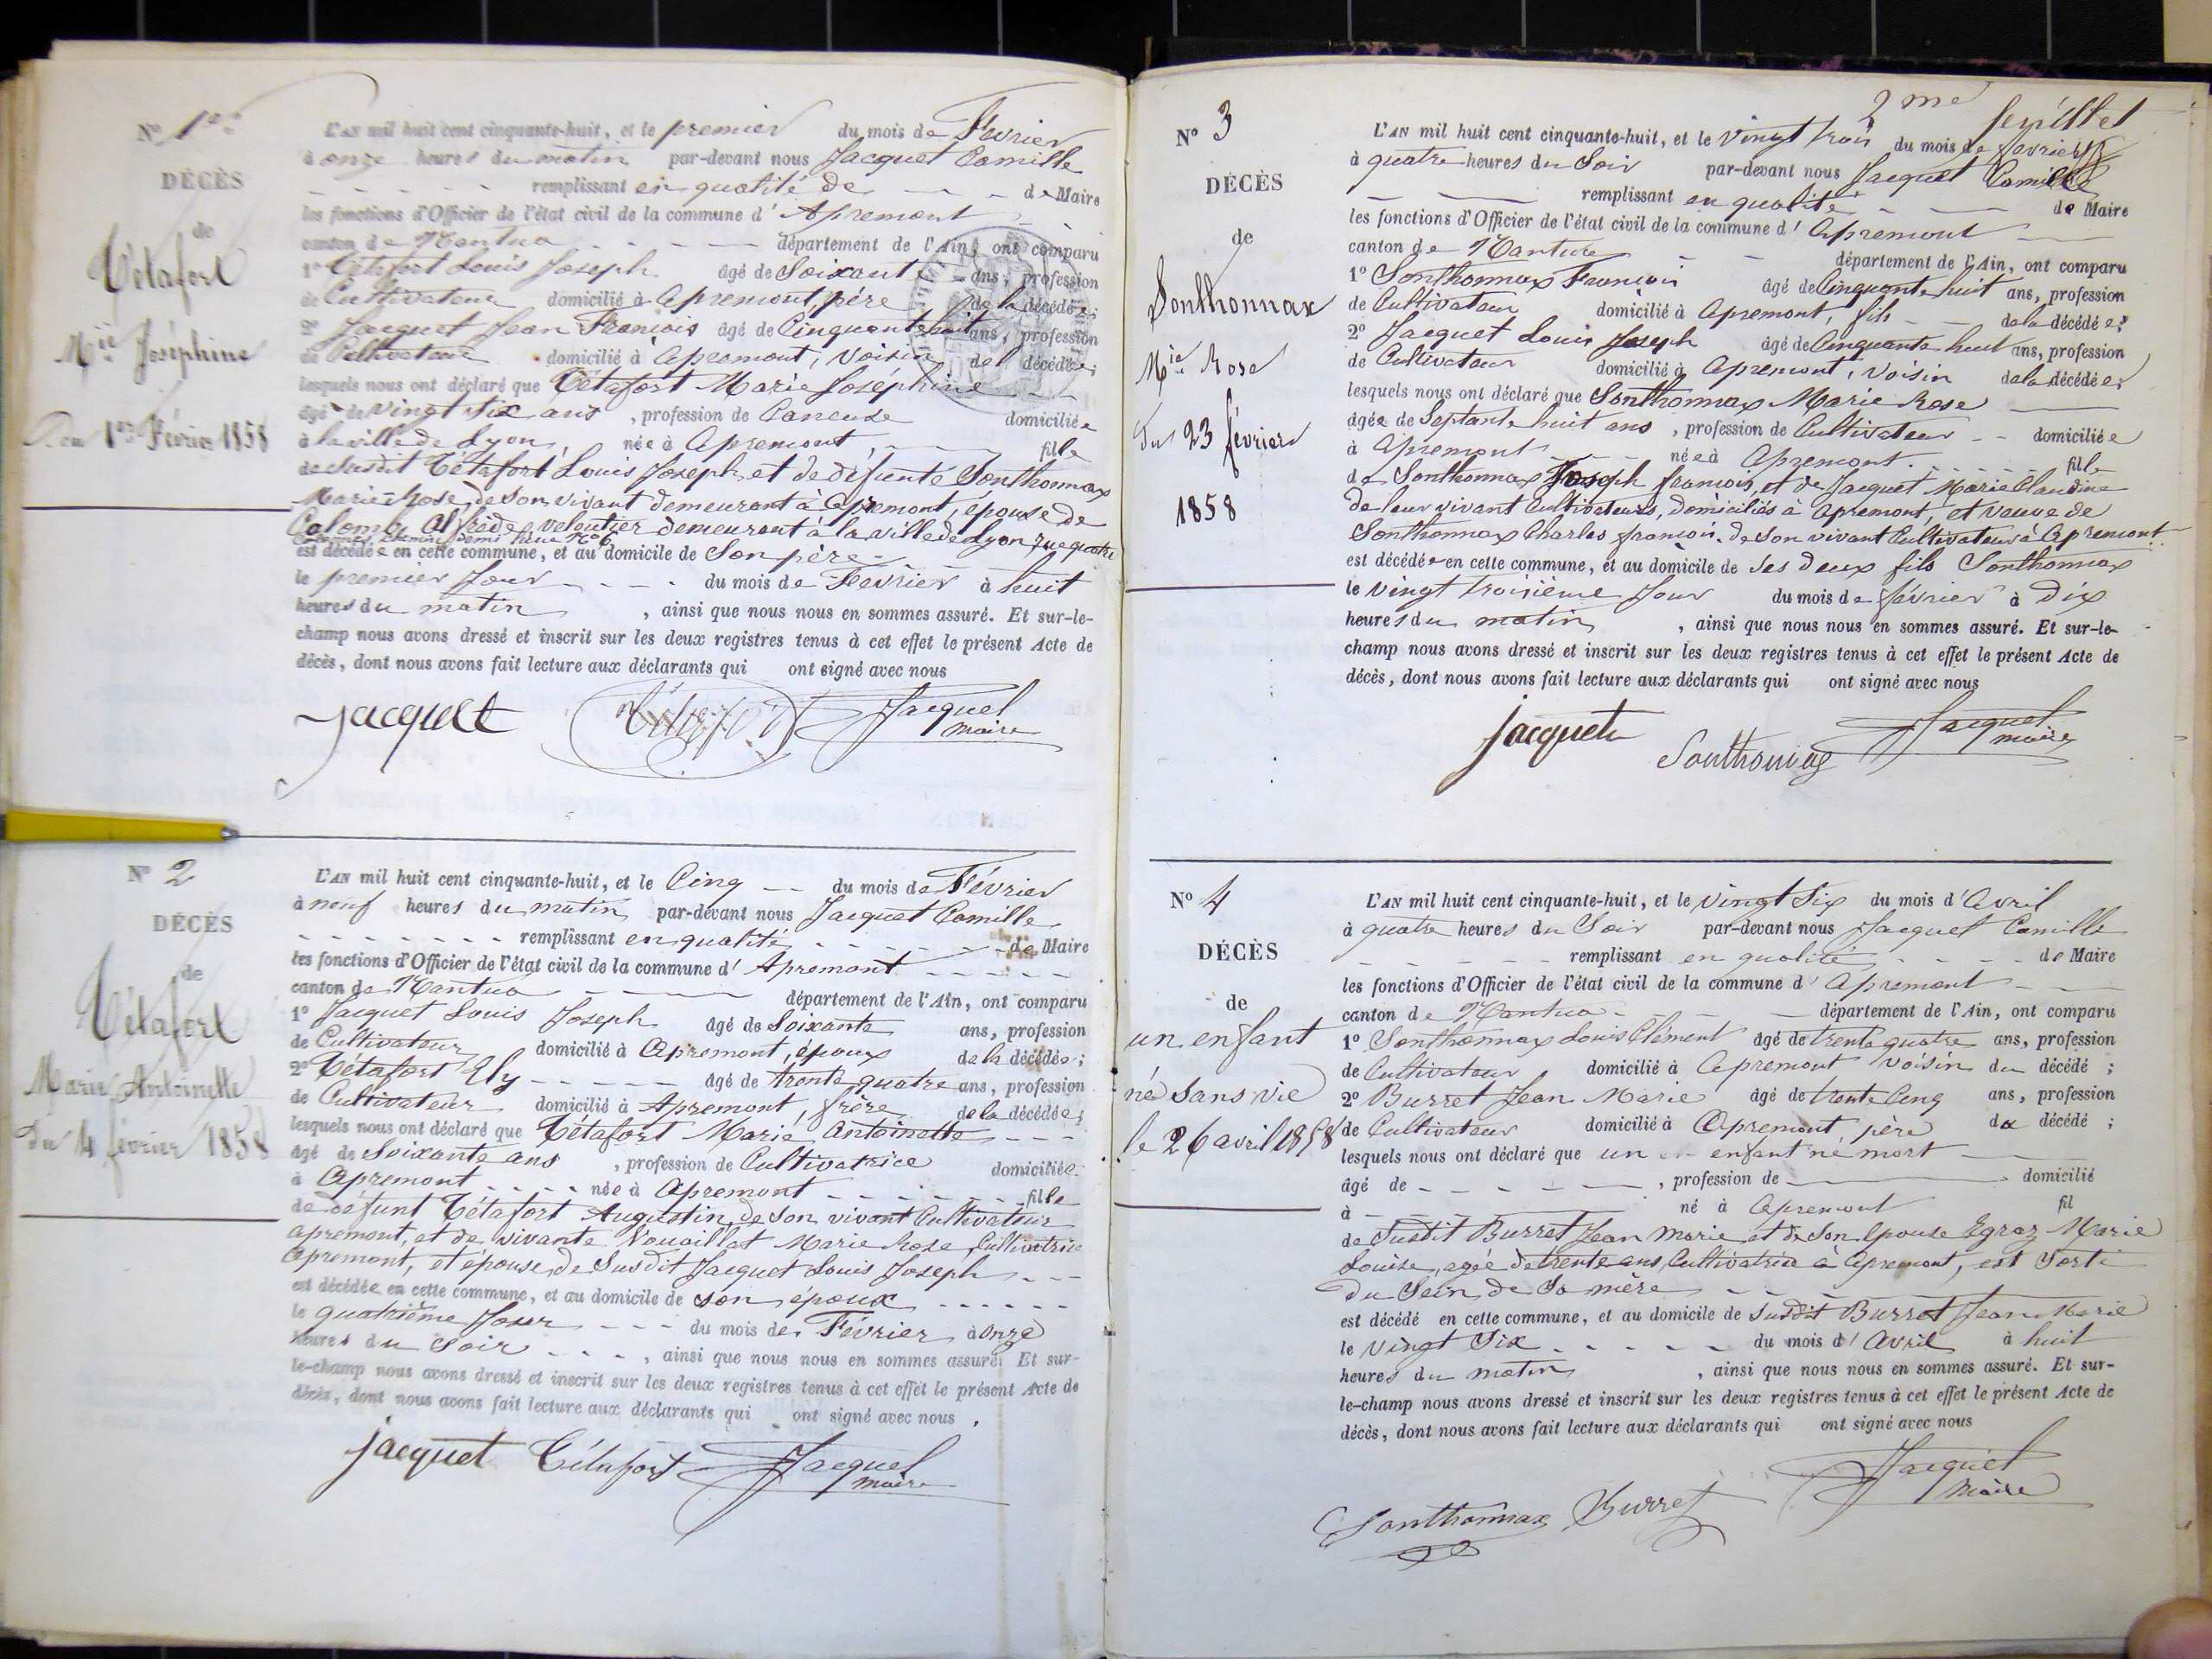 N° 1er
DÉCÈS
de
Tétafort
Mie Joséphine
Du 1er Février 1858
L'AN mil huit cent cinquante-huit, et le premier du mois de Février
à onze heures du matin par-devant nous Jacquet Camille
remplissant en qualité de de Maire
les fonctions d'Officier de l'état civil de la commune d' Apremont
canton de Nantua département de l'Ain, ont comparu
1° Tétafort Louis Joseph âgé de Soixante ans, profession
de Cultivateur domicilié à Apremont, père de la décédée;
2° Jacquet Jean François âgé de Cinquante huit ans, profession
de Cultivateur domicilié à Apremont, voisin de l décédée;
lesquels nous ont déclaré que Tétafort Marie Joséphine
âgé de vingt six ans, profession de domiciliée
à la ville de Lyon, née à Apremont fille
de Susdit Tétafort Louis Joseph et de défunte Sonthonnax
Marie-Rose, de son vivant demeurant à Apremont, épouse de
Colomby Alfrède, veloutier demeurant à la ville de Lyon rue quatre
N° 6
est décédée en cette commune, et au domicile de Son père
le premier Jour du mois de Février à huit
heures du matin, ainsi que nous nous en sommes assuré. Et sur-le-
champ nous avons dressé et inscrit sur les deux registres tenus à cet effet le présent Acte de
décès, dont nous avons fait lecture aux déclarants qui ont signé avec nous
Jacquet Tétafort Jacquet
maire
N° 2
DÉCÈS
de
Tétafort
Marie Antoinette
du 4 février 1858
L'AN mil huit cent cinquante-huit, et le Cinq du mois de Février
à neuf heures du matin par-devant nous Jacquet Camille
remplissant en qualité de Maire
les fonctions d'Officier de l'état civil de la commune d' Apremont
canton de Nantua département de l'Ain, ont comparu
1° Jacquet Louis Joseph âgé de Soixante ans, profession
de Cultivateur domicilié à Apremont, époux de la décédée;
2° Tétafort Ely âgé de trente quatre ans, profession
de Cultivateur domicilié à Apremont, frère de la décédée;
lesquels nous ont déclaré que Tétafort Marie Antoinette
âgé de Soixante ans, profession de Cultivatrice domiciliée
à Apremont née à Apremont fille
de défunt Tétafort Augustin, de Son vivant Cultivateur
apremont, et de vivante Vouaillat Marie Rose Cultivatrice
apremont, et épouse de Susdit Jacquet Louis Joseph
est décédée en cette commune, et au domicile de son époux
le quatrième Jour du mois de Février à onze
heures du soir, ainsi que nous nous en sommes assuré. Et sur-
le-champ nous avons dressé et inscrit sur les deux registres tenus à cet effet le présent Acte de
décès, dont nous avons fait lecture aux déclarants qui ont signé avec nous,
Jacquet Tétafort Jacquet
maire
2me feuillet
N° 3
DÉCÈS
de
Sonthonnax
Mie Rose
Du 23 février
1858
L'AN mil huit cent cinquante-huit, et le vingt trois du mois de favrier
à quatre heures du Soir par-devant nous Jacquet Camille
remplissant en qualité de Maire
les fonctions d'Officier de l'état civil de la commune d' Apremont
canton de Nantua département de l'Ain, ont comparu
1° Sonthonnax François âgé de Cinquante huit ans, profession
de Cultivateur domicilié à Apremont, fils de la décédée;
2° Jacquet Louis Joseph âgé de Cinquante huit ans, profession
de Cultivateur domicilié à Apremont, voisin de la décédée;
lesquels nous ont déclaré que Sonthonnax Marie Rose
âgée de Septante huit ans, profession de Cultivateur domiciliée
à Apremont née à Apremont. fille
de Sonthonnax Joseph françois, et de Jacquet Marie Claudine
de leur vivant Cultivateurs, domiciliés à Apremont, et veuve de
Sonthonnax Charles françois, de son vivant Cultivateur à Apremont.
est décédée en cette commune, et au domicile de Ses deux fils Sonthonnax
le vingt troisième Jour du mois de février à dix
heures du matin, ainsi que nous nous en sommes assuré. Et sur-le-
champ nous avons dressé et inscrit sur les deux registres tenus à cet effet le présent Acte de
décès, dont nous avons fait lecture aux déclarants qui ont signé avec nous
Jacquet Sonthonnax Jacquet
maire
N° 4
DÉCÈS
de
un enfant
né sans vie
le 26 avril 1858
L'AN mil huit cent cinquante-huit, et le vingt Six du mois d'Avril
à quatre heures du Soir par-devant nous Jacquet Camille
remplissant en qualité de Maire
les fonctions d'Officier de l'état civil de la commune d' Apremont
canton de Nantua département de l'Ain, ont comparu
1° Sonthonnax Louis Clément âgé de trente quatre ans, profession
de Cultivateur domicilié à Apremont voisin du décédé;
2° Burret Jean Marie âgé de trente Cinq ans, profession
de Cultivateur domicilié à Apremont, père du décédé;
lesquels nous ont déclaré que un enfant né mort
âgé de, profession de domicilié
à né à Apremont fil
de Susdit Burret Jean Marie et de Son épouse Egraz Marie
Louise, agée de trente ans, Cultivatrice à Apremont, est Sorti
du Sein de Sa mère
est décédé en cette commune, et au domicile de Susdit Burret Jean Marie
le vingt Six du mois d' Avril à huit
heures du matin, ainsi que nous nous en sommes assuré. Et sur-
le-champ nous avons dressé et inscrit sur les deux registres tenus à cet effet le présent Acte de
décès, dont nous avons fait lecture aux déclarants qui ont signé avec nous
Sonthonnax Burret Jacquet
Maire